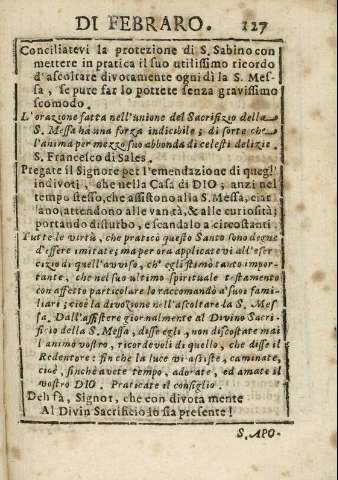 DI FEBRARO. 127
Conciliatevi la protezione di S. Sabino con
mettere in pratica il suo utilissimo ricordo
d'ascoltare divotamente ogni dì la S. Mes-
sa, se pure far lo potrete senza gravissimo
scomodo.
L'orazione fatta nell'unione del Sacrifizio della
S. Messa ha una forza indicibile; di sorte che
l'anima per mezzo suo abbonda di celesti delizie.
S. Francesco di Sales.
Pregate il Signore per l'emendazione di quegl'
indivoti, che nella Casa di DIO; anzi nel
tempo stesso, che assistono alla S. Messa, ciar
lano, attendono alle vanità, & alle curiosità;
portando disturbo, e scandalo a circostanti.
Tutte le virtù, che praticò questo Santo sono degne
d'essere imitate; ma per ora applicatevi all'eser-
cizio di quell'avviso, ch' egli stimò tanto impor-
tante, che nel suo ultimo spirituale testamento
con affetto particolare lo raccomandò a' suoi fami-
liari; cioè la devozione nell'ascoltare la S. Mes
sa. Dall'assistere giornalmente al Divino Sacri-
fizio della S. Messa, disse egli, non discostate mai
l'animo vostro, ricordevoli di quello, che disse il
Redentore: fin che la luce vi assiste, caminate,
cioè, finchè avete tempo, adorate, ed amate il
vostro DIO. Praticate il consiglio.
Deh fà, Signor, che con divota mente
Al Divin Sacrificio io sia presente!
S. APO-